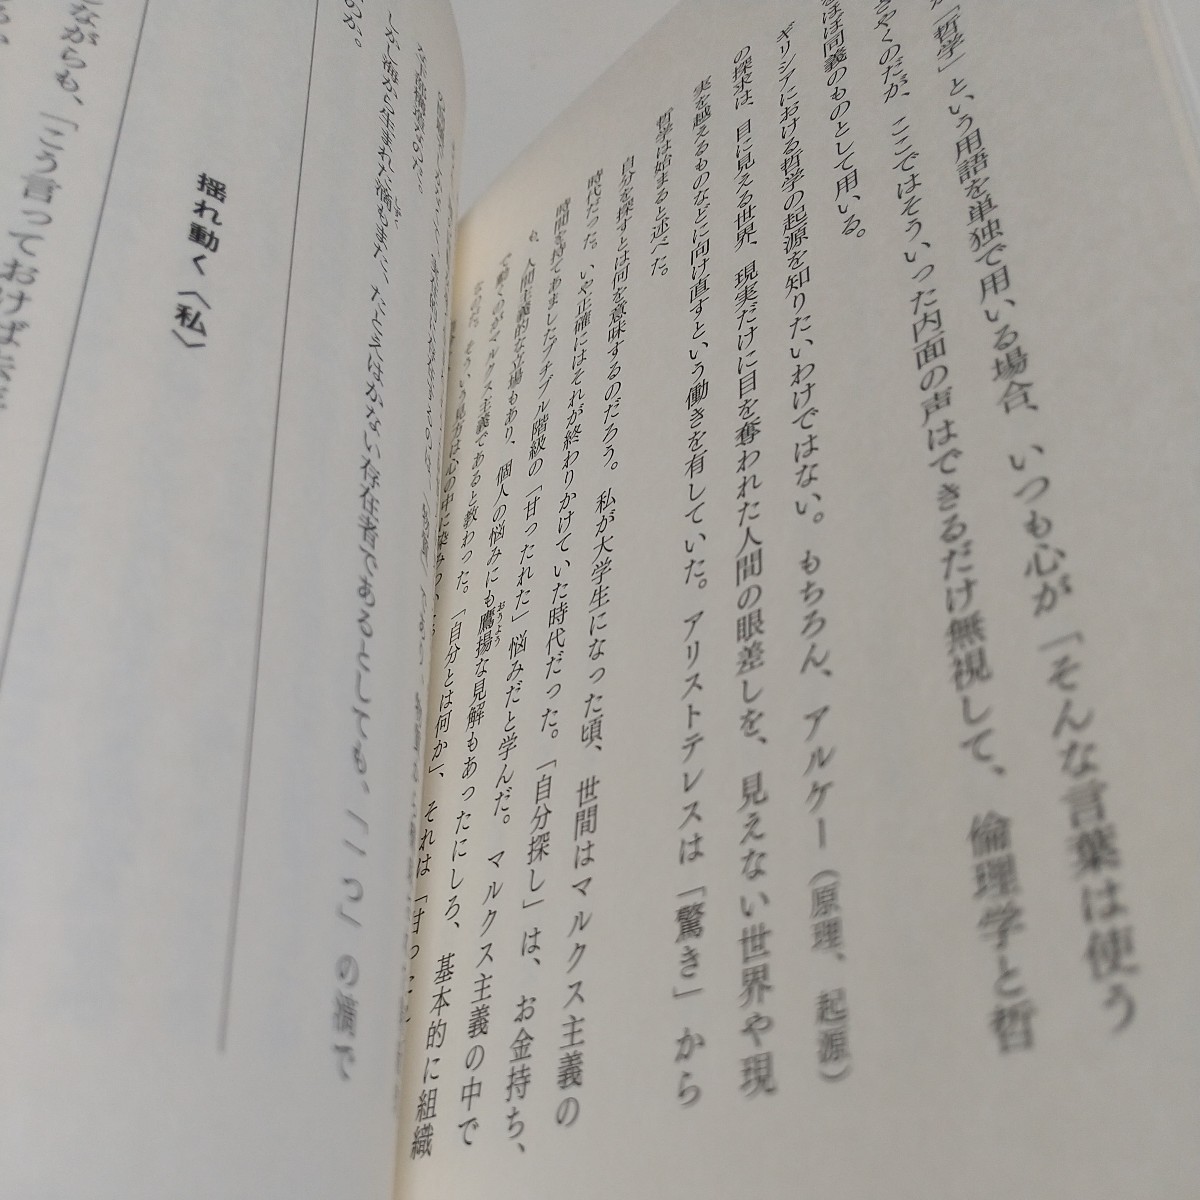 「哲学」という用語を単独で用いる場合、いつも心が「そんな言葉は使う
やくのだが、ここではそういった内面の声はできるだけ無視して、倫理学と哲
ほぼ同義のものとして用いる。
ギリシアにおける哲学の起源を知りたいわけではない。もちろん、アルケー(原理、起源)
の探求は、目に見える世界、現実だけに目を奪われた人間の眼差しを、見えない世界や現
実を越えるものなどに向け直すという働きを有していた。アリストテレスは「驚き」から
哲学は始まると述べた。
自分を探すとは何を意味するのだろう。私が大学生になった頃、世間はマルクス主義の
時代だった。いや正確にはそれが終わりかけていた時代だった。「自分探し」は、お金持ち、
時間を持てあましたプチブル階級の「甘ったれた」悩みだと学んだ。マルクス主義の中で
も、人間主義的な立場もあり、個人の悩みにも鷹揚な見解もあったにしろ、基本的に組織
おうよう
で動くのがマルクス主義であると教わった。「自分とは何か」、それは「甘っ
なのだ。そういう見方は心の中に
しかし海から生まれた滴もまた、たとえはかない存在者であるとしても、「一つ」の滴で
しずく
のか。
揺れ動く〈私〉
ながらも、「こう言っておけば